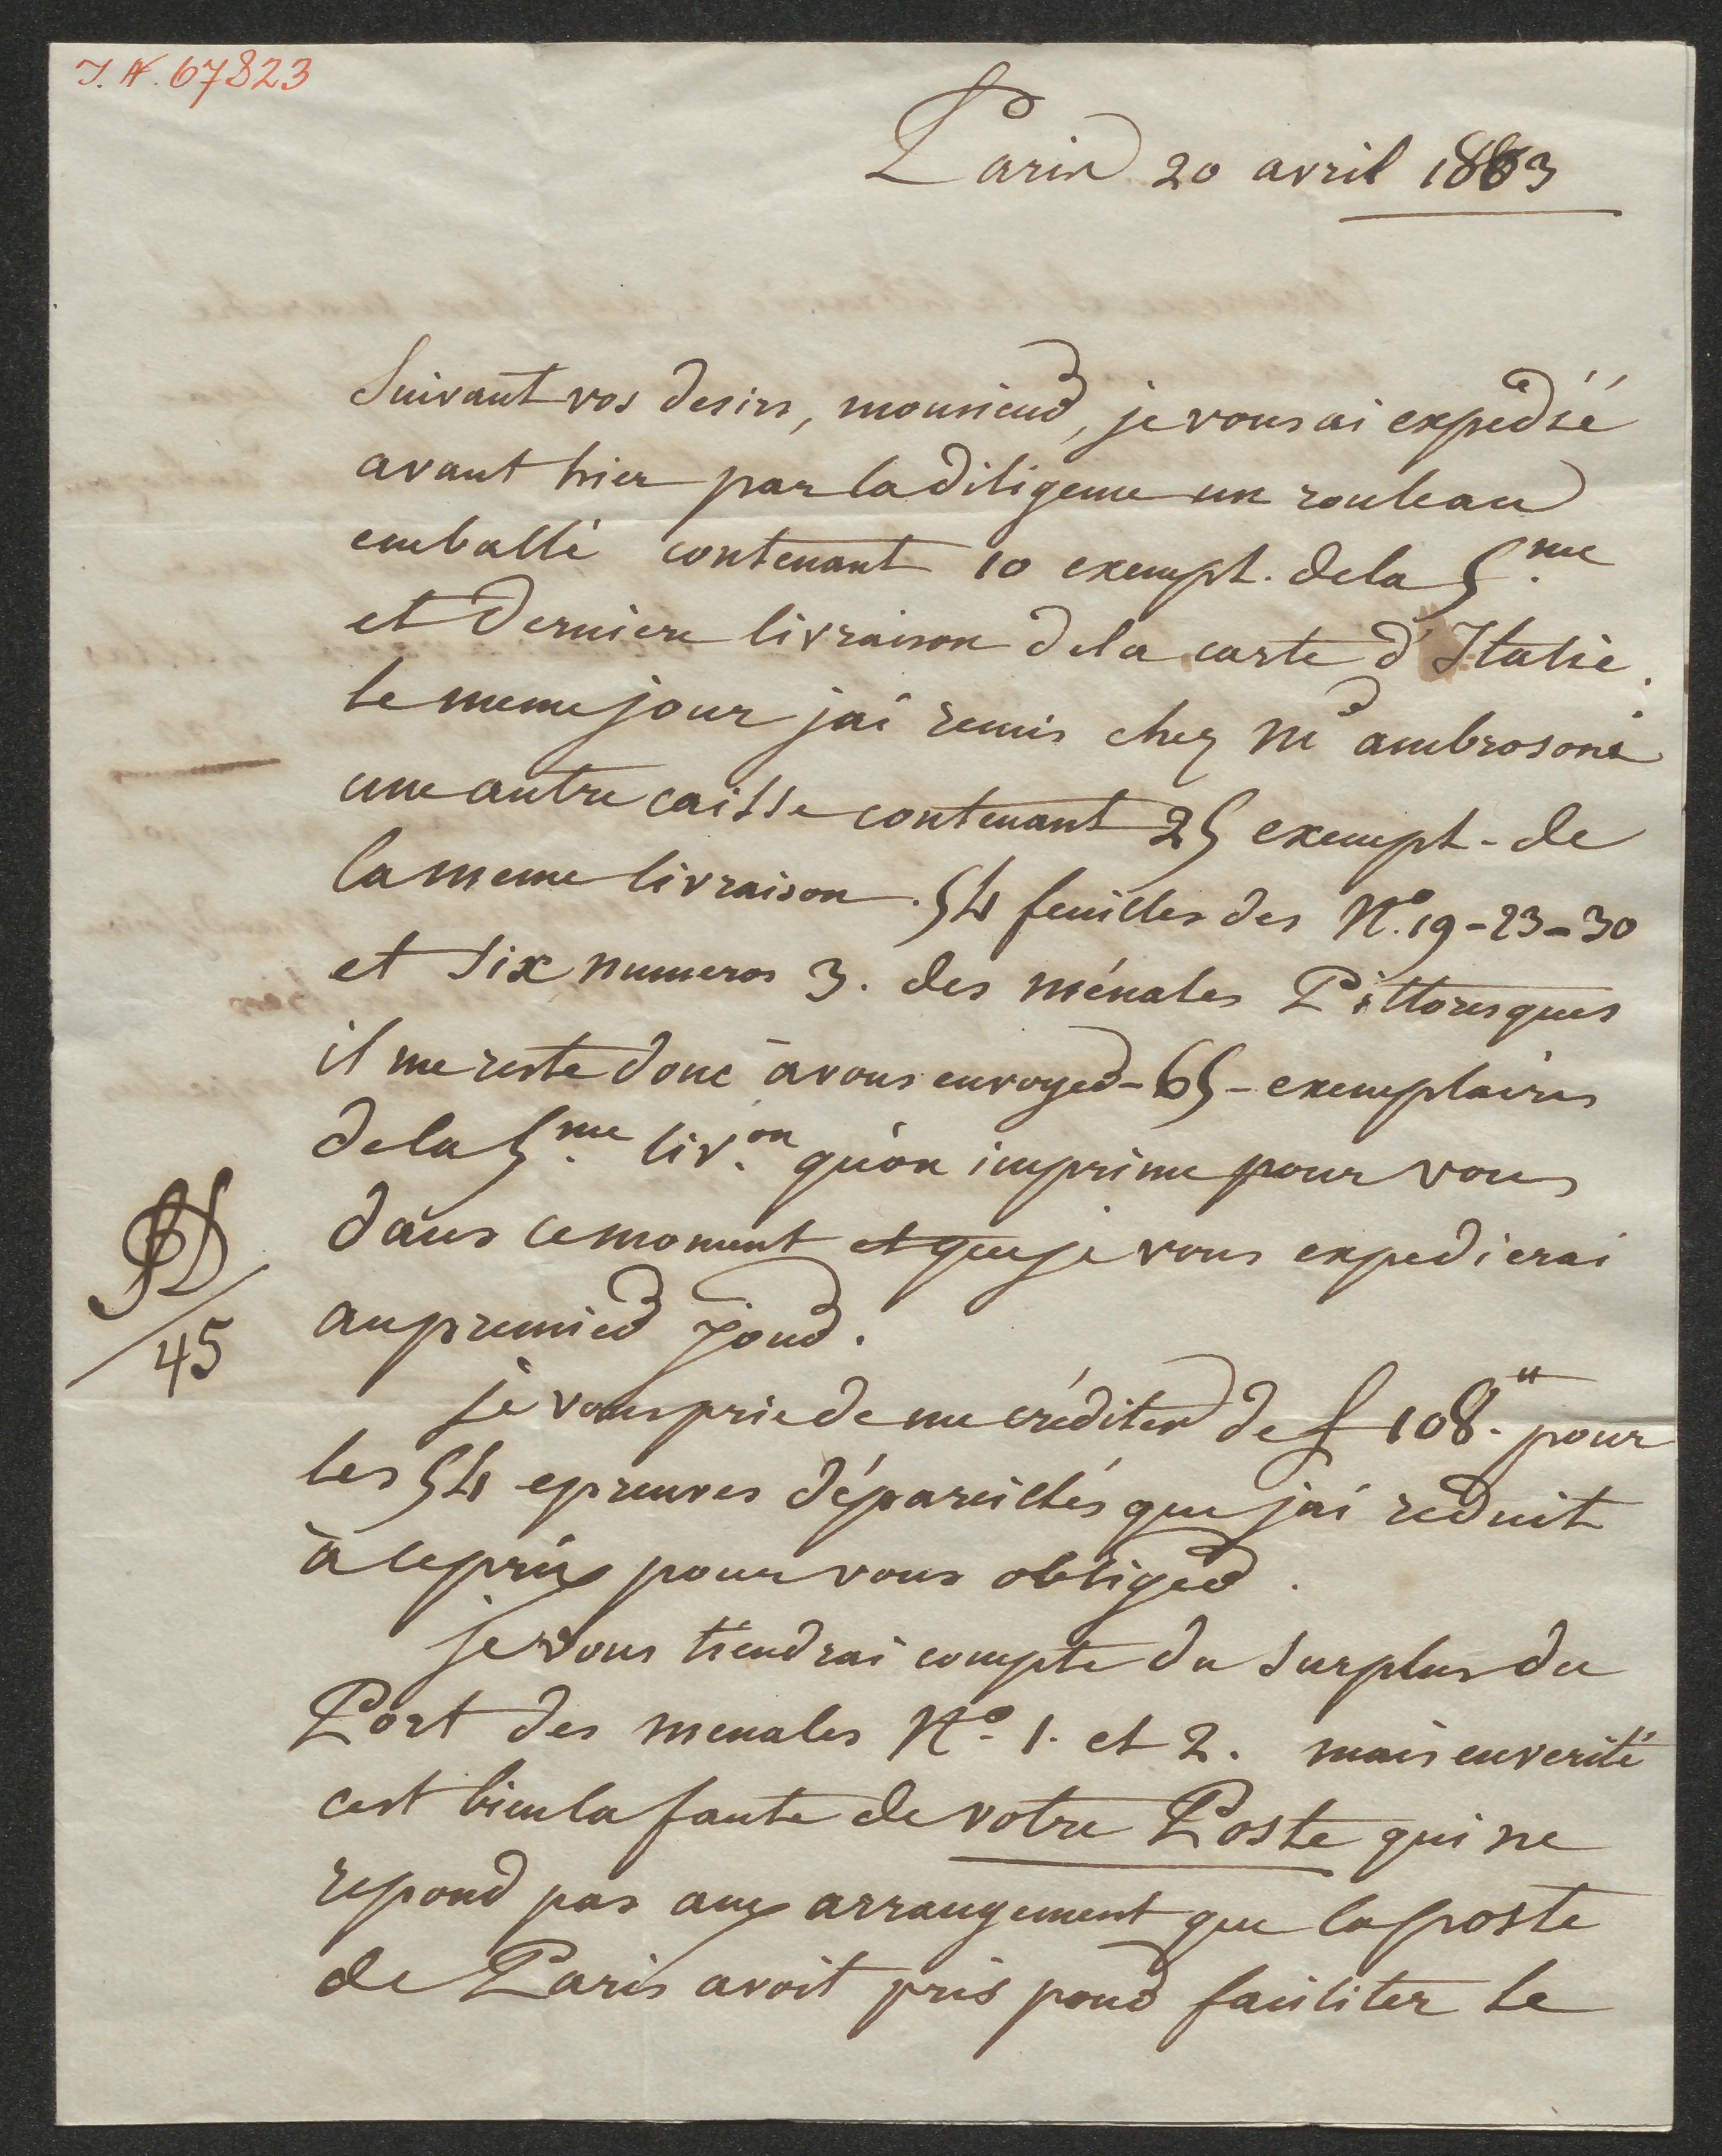 I. N. 67823
Paris 20 avril 1803
Suivant vos desirs, monsieur, je vous ai expédié
avant hier par la diligence un rouleau
emballé contenant 10 exempl. de la 5.me
et derniere livraison de la carte d'Italie.
le meme jour jai remis chez Mr ambrosoni
une autre caisse contenant 25 exempl. de
la meme livraison. 54 feuilles des No. 19-23-30
et six numeros 3. des ménales Pittoresques
il me reste donc à vous envoyer - 65 - exemplaires
de la 5.me liv.on qu'on imprime pour vous
dans ce moment et que je vous expedierai
au premier jour.
45
je vous prie de me créditer de f 108." pour
les 54 epreuves dépareillés que jai reduit
à ce prix pour vous obliger.
je vous tiendrai compte du surplus du
Port des menales No. 1. et 2. mais en verité
cest bien la faute de votre Poste qui ne
repond pas aux arrangement que la poste
de Paris avoit pris pour faciliter le